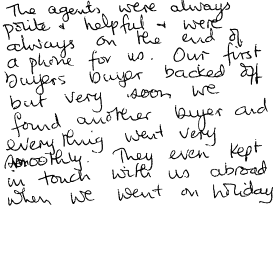 The agents were always
polite & helpful & were
always on the end of
a phone for us. Our first
buyers buyer backed off
but very soon we
found another buyer and
everything went very
smoothly. They even kept
in touch with us abroad
when we went on holiday